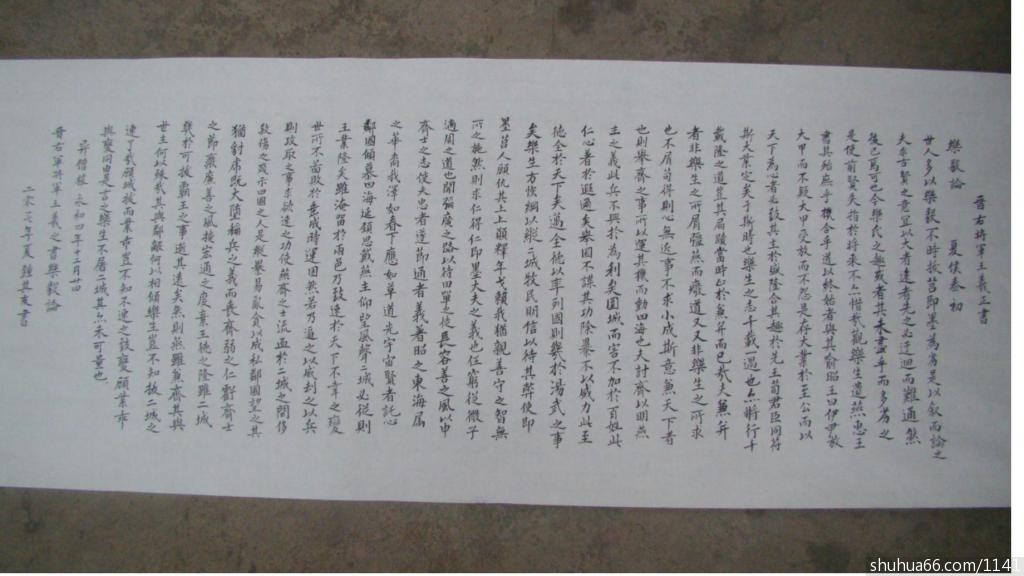 晋右將軍王羲正書
樂毅論 夏侯泰初
世人多以樂毅不時拔莒即墨為劣是以叙而論之
夫求古賢之意宜以大者遠者先之必迂迴而難通然
後已焉可也今樂氏之趣或者其未盡乎而多劣之
是使前賢失指於将来不亦惜哉觀樂生遺燕惠王
書其殆庶乎機合乎道以終始者與其喻昭王曰伊尹放
大甲而不疑大甲受放而不怨是存大業於至公而以
天下為心者必致其主於盛隆合其趣於先王苟君臣同符
斯大業定矣于斯時也樂生之志千載一遇也亦將行千
載隆之道豈其局蹟當時止於兼并而已哉夫兼并
者非樂生之所屑彊燕而癈道又非樂生之所求
也不屑苟得則心無近事不求小成斯意兼天下者
也則舉齊之事所以運其機而動四海也夫討齊以明燕
主之義此兵不興於為利矣圍城而害不加於百姓此
仁心著於遐邇矣舉國不謀其功除暴不以威力此至
德全於天下矣邁全德以率列國則幾於湯武之事
矣樂生方恢綱以縱二城牧民明信以待其弊使即
墨莒人顧仇其上願釋干戈賴我猶親善守之智無
所之施然則求仁得仁即墨大夫之義也任窮從微子
適周之道也開彌廣之路以待田單之徒長容善之風以申
齊士之志使夫忠者遂節通者義著昭之東海屬
之華裔我澤如春下應如草道光宇宙賢者託心
鄰國傾慕四海延頸思戴燕主仰望風聲二城必從則
王業隆矣雖淹留於兩邑乃致速於天下不幸之變
世所不啚敗於垂成時運固然若乃逼之以威劫之以兵
則攻取之事求欲速之功使燕齊之士流血於二城之間侈
敦傷之殘示四國之人是縱暴易亂貪以成私鄰國望之其
猶豺虎既大墮稱兵之義而喪濟弱之仁虧齊士
之節癈廉善之風掩宏通之度棄王德之隆雖二城
幾於可拔霸王之事逝其遠矣然則燕雖兼齊其與
世主何以殊哉其與鄰敵何以相傾樂生豈不知拔二城之
速了哉顧城拔而業乖豈不知不速之致變顧業乖
與變同由是言之樂生不屠二城其亦未可量也
異僧權 永和四年十二月廿四
晉右軍將軍王羲之書樂毅論
二零年夏 鍾其友書
shuhua66.com/1141